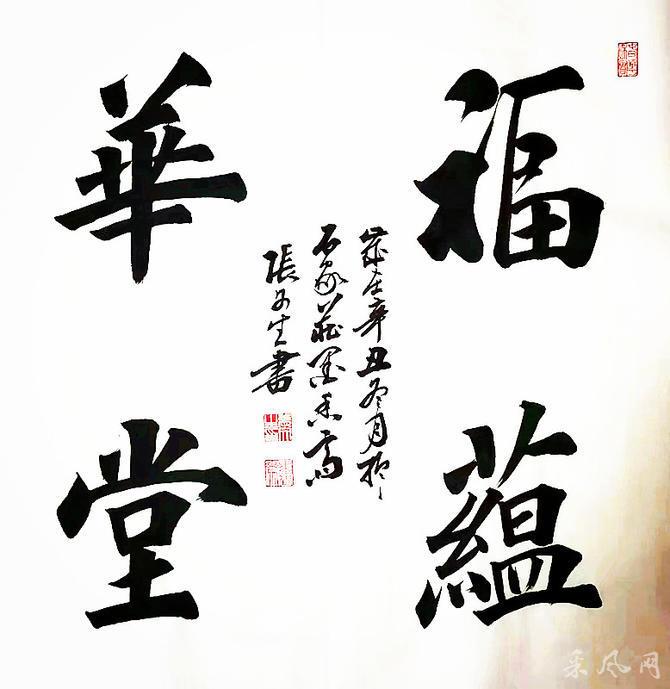 福蘊
華堂
歲在辛丑冬月於
石家莊墨香齋
張生書
采风网